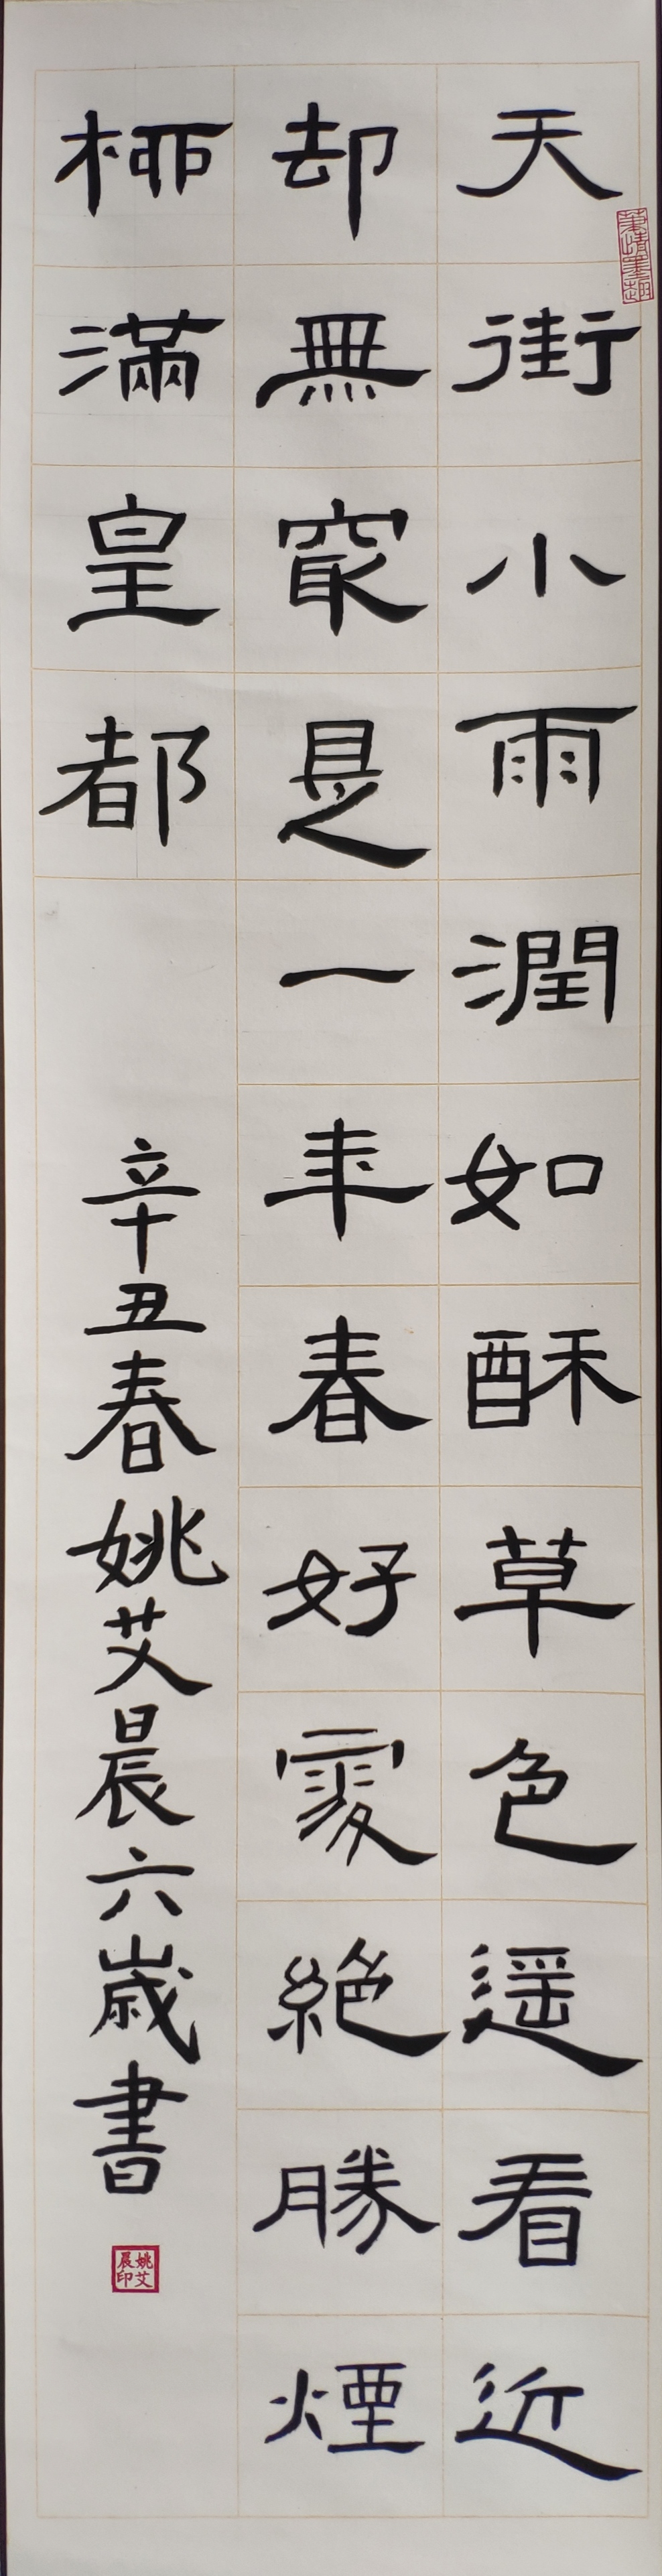 天街小雨潤如酥草色遥看近
却無最是一年春好處絕勝煙
柳滿皇都
辛丑春姚艾晨六歲書
姚艾晨印